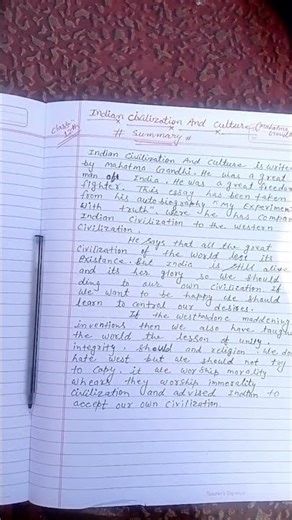 Class-
12th
Indian Civilization And Culture (Mahatma
Gandhi
# Summary #
Indian Civilization And Culture is written
by Mahatma Gandhi. He was a great
man of India. He was a great freedom
fighter. This essay has been taken
from his autobiography "My Experiment
with truth". Were he has compared
Indian Civilization to the western
civilization.
He says that all the great
Civilization of the world lost its
Existance. But India is still alive
and its her glory so we should
ding to our own civilization if
we want to be happy we should
learn to control our desires.
If the west has done maddening
inventions then we also have taught
the world the lesson of unity,
integrity, should and religion. We don
hate west but we should not try
to copy. it we worship morality
whears they worship immorality
civilization and advised Indian to
accept our own civilization.